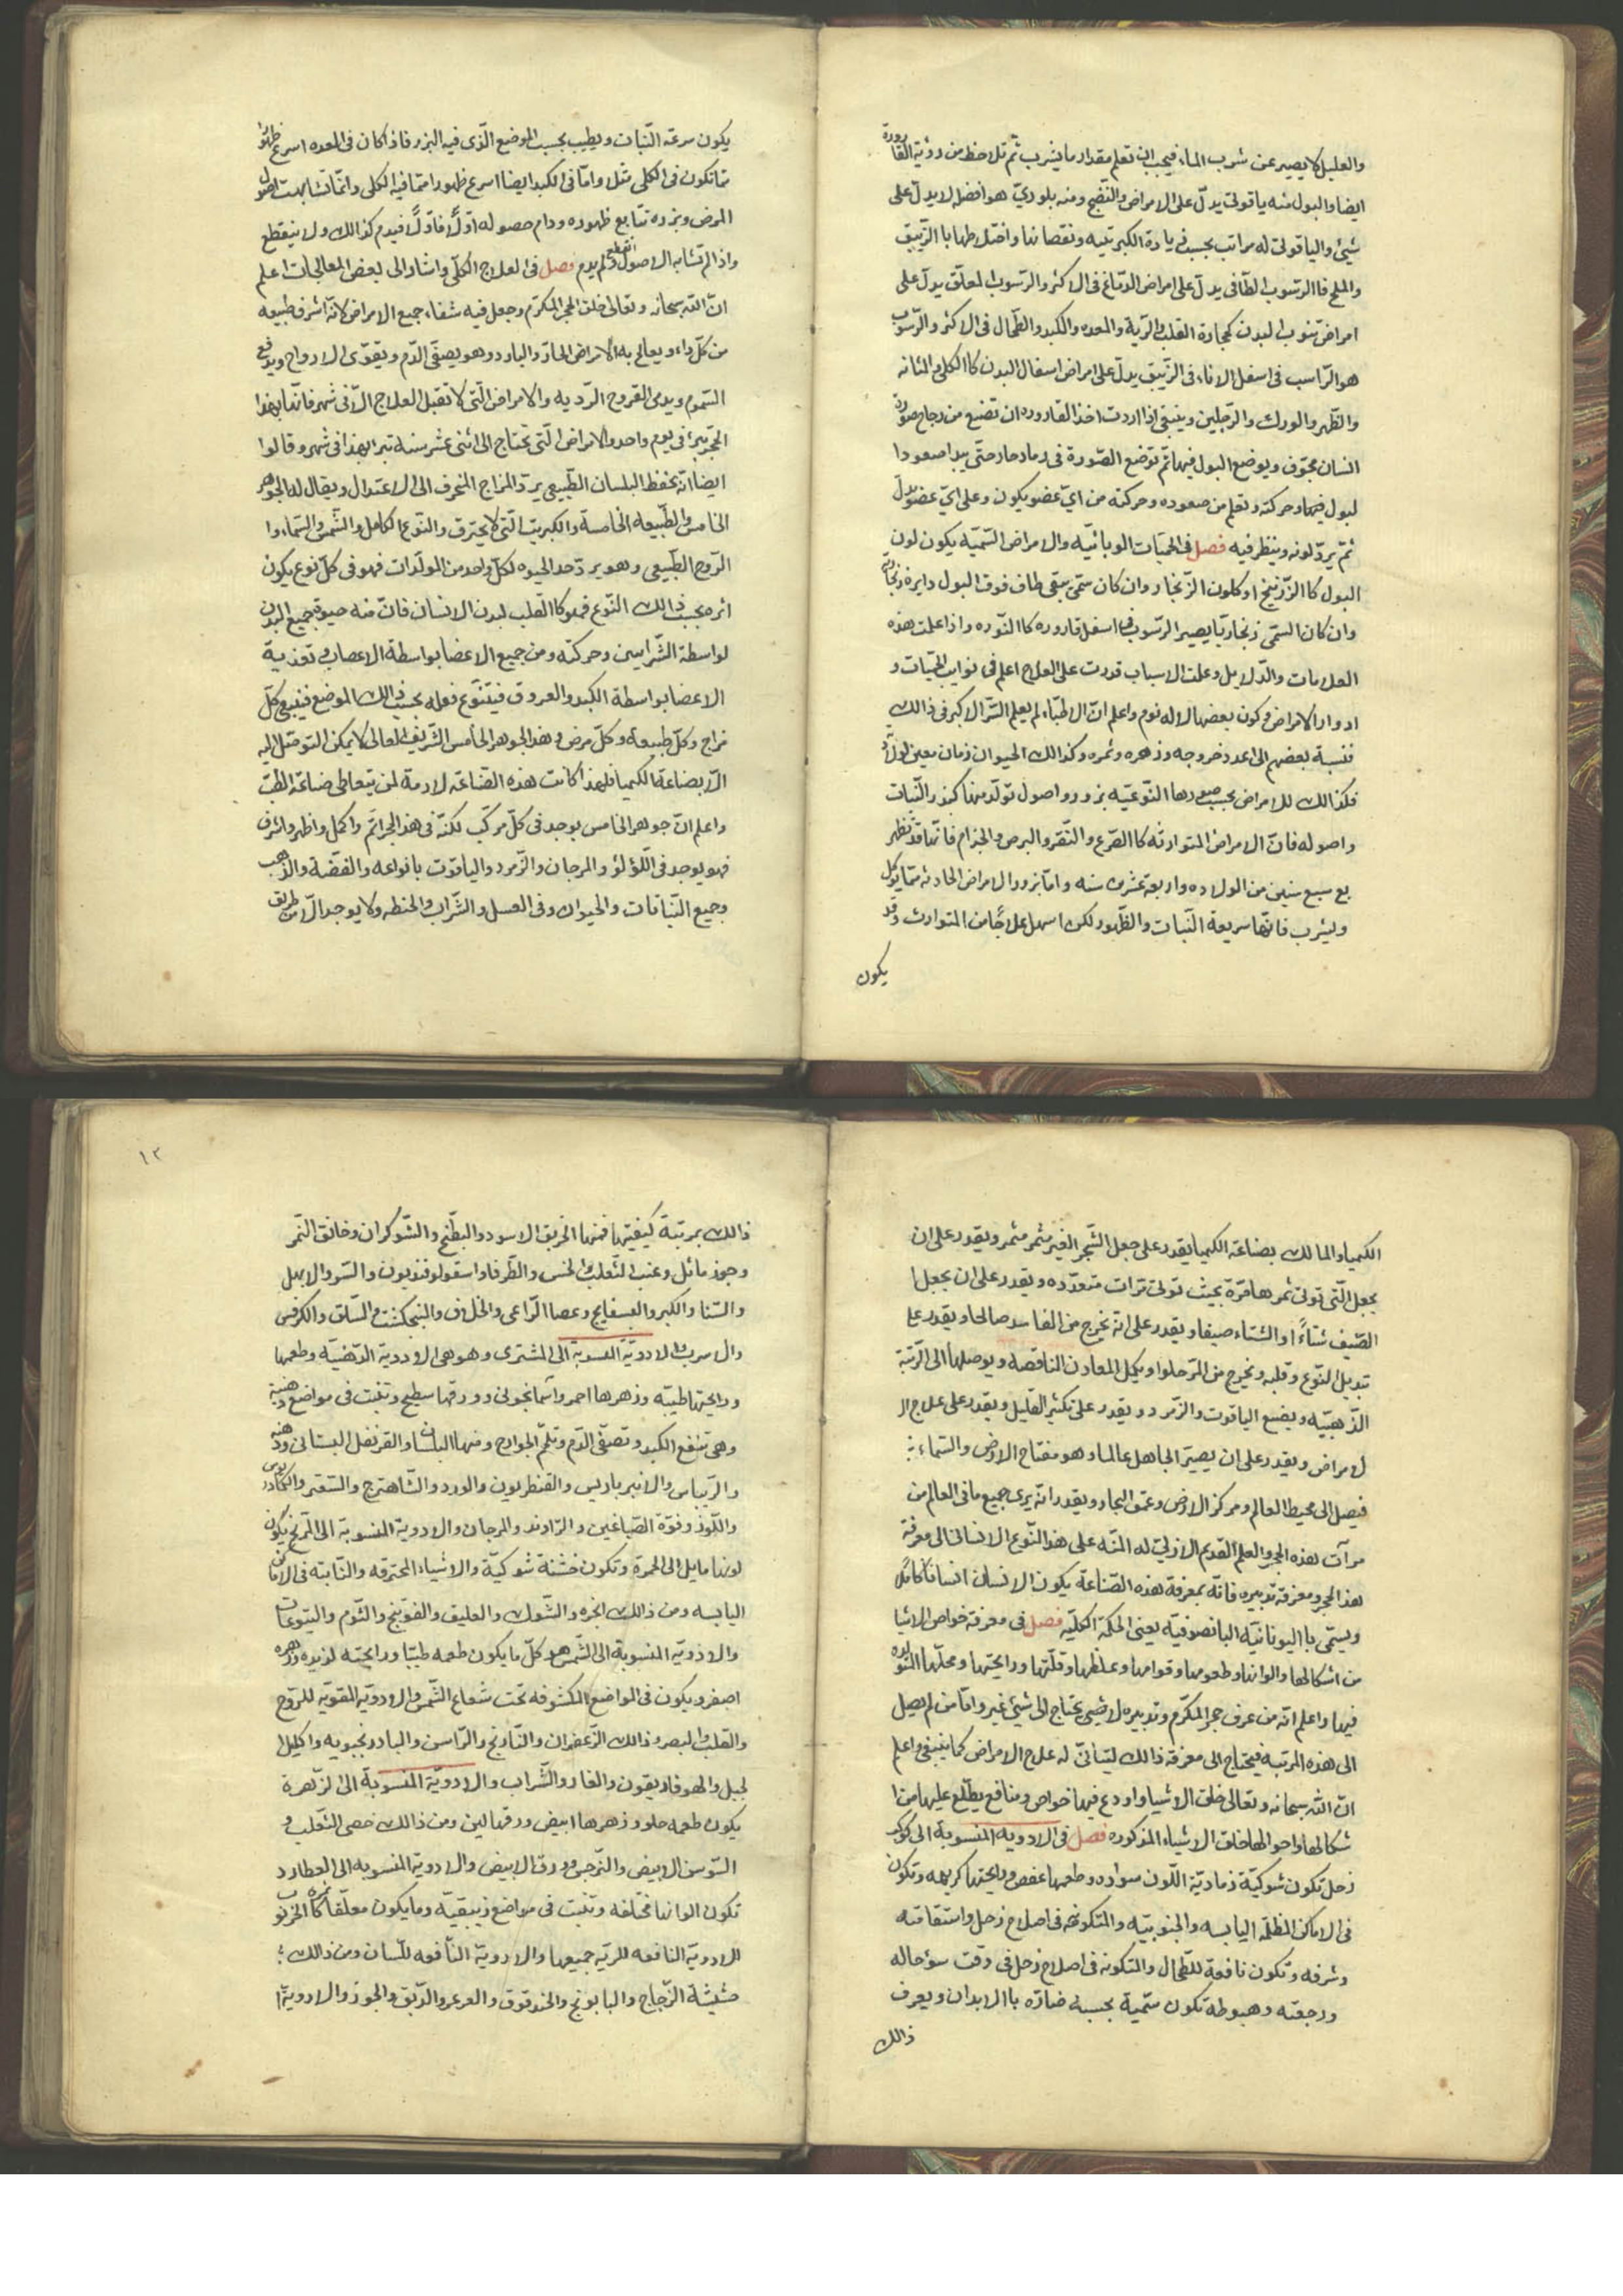 والعليل لا يصير عن شرب الماء فيجب ان تعلم مقدار ما يشرب ثم تلاحظ من رؤية القارورة
ايضا والبول منه ياقوتى يدلّ على الامراض والنّضج ومنه بلوريّ هو افضل لا يدلّ على
شيئ والياقوتى له مراتب بحسب زيادة الكبريتيه ونقصانها واختلاطها با الزّيبق
والملح فا الرّسوب الطّافى يدلّ على امراض الدّماغ فى الاكثر والرّسوب المعلّق يدلّ على
امراض تنوب البدن كحجارة القلب والرّية والمعده والكبد والطّحال فى الاكثر والرّسوب
هو الرّاسب فى اسفل الاناء فى الزّيبق يدلّ على امراض اسفال البدن كا الكلى والمثانه
والظّهر والورك والرّجلين وينبغى اذا اردت اخذ القاروره ان تضع من زجاج صورة
انسان مجوّف ويوضع البول فيها ثم توضع الصّورة فى رماد حار حتّى يبدا صعود ا
لبول فيها وحركته وتعلم من صعوده وحركته من ايّ عضو يكون وعلى ايّ عضو يدلّ
ثم يردّ لونه وينظر فيه فصل فى الحميّات الوبائيّه والامراض السّميّه يكون لون
البول كا الزّرنيخ او كلون الزّنجار وان كان سمّى يبقى طاف فوق البول دايرة زنجاريّه
وان كان السمّى زنجاريّا يصير الرّسوب فى اسفل قاروره كا النّوره واذا علمت هذه
العلامات والدّلايل وعلمت الاسباب قدرت على العلاج اعلم فى نوايب الحميّات و
ادوار الامراض وكون بعضها لا له نوم واعلم انّ الاطبّاء لم يعلم السّر الاكبر فى ذالك
فنسبة بعضهم الى عدد خروجه وزهره وثمره وكذالك الحيوان زمان معين لولاد
فكذالك للامراض بحسب صورها النّوعيّه بزور واصول تولّد منها كبذر النّبات
واصوله فانّ الامراض المتوارثه كا الصّرع والنّقرو البرص والجذام فانّها قد تظهر
بع سبع سنين من الولاده واربعة عشرت سنه وامّا بزور الامراض الحادثه ممّا يوكل
ويشرب فانّها سريعة النّبات والظّهور لكن اسهل علاجًا من المتوارث وقد
يكون
يكون سرعة النّبات وبطيب بحسب الموضع الّذى فيه البزر فاذا كان فى المعده اسرع ظهورا
ممّا تكون فى الكلى مثلا وامّا فى الكبد ايضا اسرع ظهورا ممّا فيه الكلى وانمّا تشابهت اصول
المرض وبزره تتابع ظهوره ودام حصوله اوّلًا فاوّلًا فيدم كذالك ولا ينقطع
واذا لم تشابه الاصول انقطع ولم يدم فصل فى العلاج الكلّى واشار الى بعض المعالجات اعلم
انّ الله سبحانه وتعالى خلق الحجر المكرّم وجعل فيه شفاء جميع الامراض لانّه اشرف طبيعه
من كلّ داء ويعالج به الامراض الحادّ والبارد وهو يصفّى الدّم ويقوّى الارواح ويدفع
السّموم ويدمى القروح الرّديه والامراض الّتى لا تقبل العلاج الّا فى شهر فانّها بهذا
الحجر تبرى فى يوم واحد والامراض الّتى تحتاج الى اثنى عشر سنه تبرا بهذا فى شهر وقالوا
ايضا انّه يحفظ البلسان الطّبيعى يردّ المزاج المنحرف الى الاعتدال ويقال له الجوهر
الخامس والطّبيعه الخامسة والكبريت الّتى لا يحترق والنّوع الكامل والشّمس والسّماء وا
الرّوح الطّبيعى وهو يردّ حد الحيوه لكلّ واحد من المولّدات فهو فى كلّ نوع يكون
اثره بحسب ذالك النّوع فهو كا القلب لبدن الانسان فانّ منه حيوة جميع البدن
لواسطة الشّرايين وحركته ومن جميع الاعضا بواسطة الاعصاب وتغذية
الاعضا بواسطة الكبد والعروق فيتنوّع فعله بحسب ذالك الموضع فينبغى كلّ
مزاج وكلّ طبيعة وكلّ مرض وهذا الجوهر الخامس الشّريف العالى لا يمكن التوصّل اليه
الّا بصناعة الكيميا فلهذا كانت هذه الصّناعة لازمة لمن يتعاطى صناعة الطبّ
واعلم انّ جوهر الخامس يوجد فى كلّ مركّب لكنّه فى هذا الحجر اتمّ واكمل واظهر واشرف
فهو يوجد فى اللّؤلؤ والمرجان والزّمرد والياقوت بانواعه والفضّة والذّهب
وجميع النّباتات والحيوان وفى العسل والشّراب والحنطه ولا يوجد الّا من طريق
الكيميا والمالك بصناعة الكيميا يقدر على جعل الشّجر الغير مثمر مثمر ويقدر على ان
يجعل الّتى توتى ثمرها مرّة بحيث توتى مرّات متعدّده ويقدر على ان يجعل ا
الصّيف شتاءً او الشتاء صيفا ويقدر على انه يخرج من الفاسد صالحا ويقدر على
تبديل النّوع وقلبه ويخرج من المرّ حلوا ويكمل المعادن النّاقصه ويوصلها الى الرّتبة
الذّهبيّه ويصنع الياقوت والزّمرد ويقدر على تكثير القليل ويقدر على علاج ال
لامراض ويقدر على ان يصيّر الجاهل عالما وهو مفتاح الارض والسّماء
فيصل الى محيط العالم ومركز الارض وعمق البحار ويقدر انه يرى جميع ما فى العالم من
مرآت لهذه الحجر والعلم القديم الازليّ له المنّه على هذا النّوع الانسانى الى معرفة
هذا الحجر ومعرفة تدبيره فانّه بمعرفة هذه الصّناعة يكون الانسان انسانا كاملا
ويسمّى با اليونانيّه البانصوفيّه يعنى الحكمة الكليّه فصل فى معرفة خواص الاشيا
من اشكالها والوانها وطعومها وقوامها وغلظها وقلّتها ورايحتها ومحلّها المتولّده
فيها واعلم انّه من عرف حجر المكرّم وتدبيره لا يحتاج الى شيئ غير وامّا من لم يصل
الى هذه المرتبه فيحتاج الى معرفة ذالك ليتأتى له علاج الامراض كما ينبغى واعلم
انّ الله سبحانه وتعالى خلق الاشيا واودع فيها خواص ومنافع يطّلع عليها من ا
شكالها واحوالها خلق الاشياء المذكوره فصل فى الادويه المنسوبة الى كوكب
زحل تكون شوكيّة رماديّة اللّون سواده وطعمها عفص ورايحتها كريهه وتكون
فى الاماكن المظلمه اليابسه والجنوبيّه والمتكونه فى اصلاح زحل واستقامته
وشرفه وتكون نافعة للطّحال والمتكونه فى اصلاح زحل فى وقت سوء حاله
ورجعته وهبوطه تكون سمّية بحسبه ضارّه با الابدان ويعرف
ذالك
١٢
ذالك بمرتبة كيفيتها فمنها الخربق الاسود والبطّيخ والشّوكران وخانق النّمر
وجوز ماثل وعنب الثّعلب والخس والطّرفا واسقولوفنديون والسّرو والابهل
والسّنا والكبر والبسفايج وعصا الرّاعى والخلاف والبنجكشت والسّلق والكرفس
والاسرب والادويّة المنسوبة الى المشترى وهو هى الادوية الدّهنيّه وطعمها
ورايحتها طيّبه وزهرها احمر واسمانجونى وورقها سطيح وتنبت فى مواضع دهنية
وهى تنفع الكبد وتصفّى الدّم وتلحّم الجوارح ومنها البلسان والقرنفل البستانى ودهنه
والرّيباس والانبرباريس والقنطريون والورد والشّاهترج والسّعتر والكمادريوس
واللّوز وفوّة الصّباغين والرّاوند والمرجان والادوية المنسوبة الى المرّيخ يكون
لونها مايل الى الحمرة وتكون خشنة شوكيّة والاشياء المحترقه والنّابته فى الاماكن
اليابسه ومن ذالك انجره والشّوك والعليق والفوتنج والثّوم واليتوعات
والادويّة المنسوبة الى الشّمس هو كلّ ما يكون طعمه طيّبا ورايحته لذيذه وزهره
اصفر ويكون فى المواضع المكشوفه تحت شعاع الشّمس والادويّة المقويّه للرّوح
والقلب والبصر وذالك الزّعفران والنّارنج والرّاسن والبادرنجبويه واكليل ا
لجبل والهوفاريقون والغار والشّراب والادويّة المنسوبة الى لزّهرة
يكون طعمه حلو وزهرها ابيض ورقها لين ومن ذالك خصى الثّعلب و
السّوسن الابيض والنّرجس وورق الابيض والادوية المنسوبه الى العطارد
تكون الوانها مختلفه وتنبت فى مواضع زيبقيّة وما يكون معلّقا ثمره كا الخرنوب
للادويّة النافعه للرّيه جميعها والادويّة النّافعه للّسان ومن ذالك
حشيشة الزّجاج والبابونج والخندقوق والعرعر والدّبق والجوز والادويّة ا